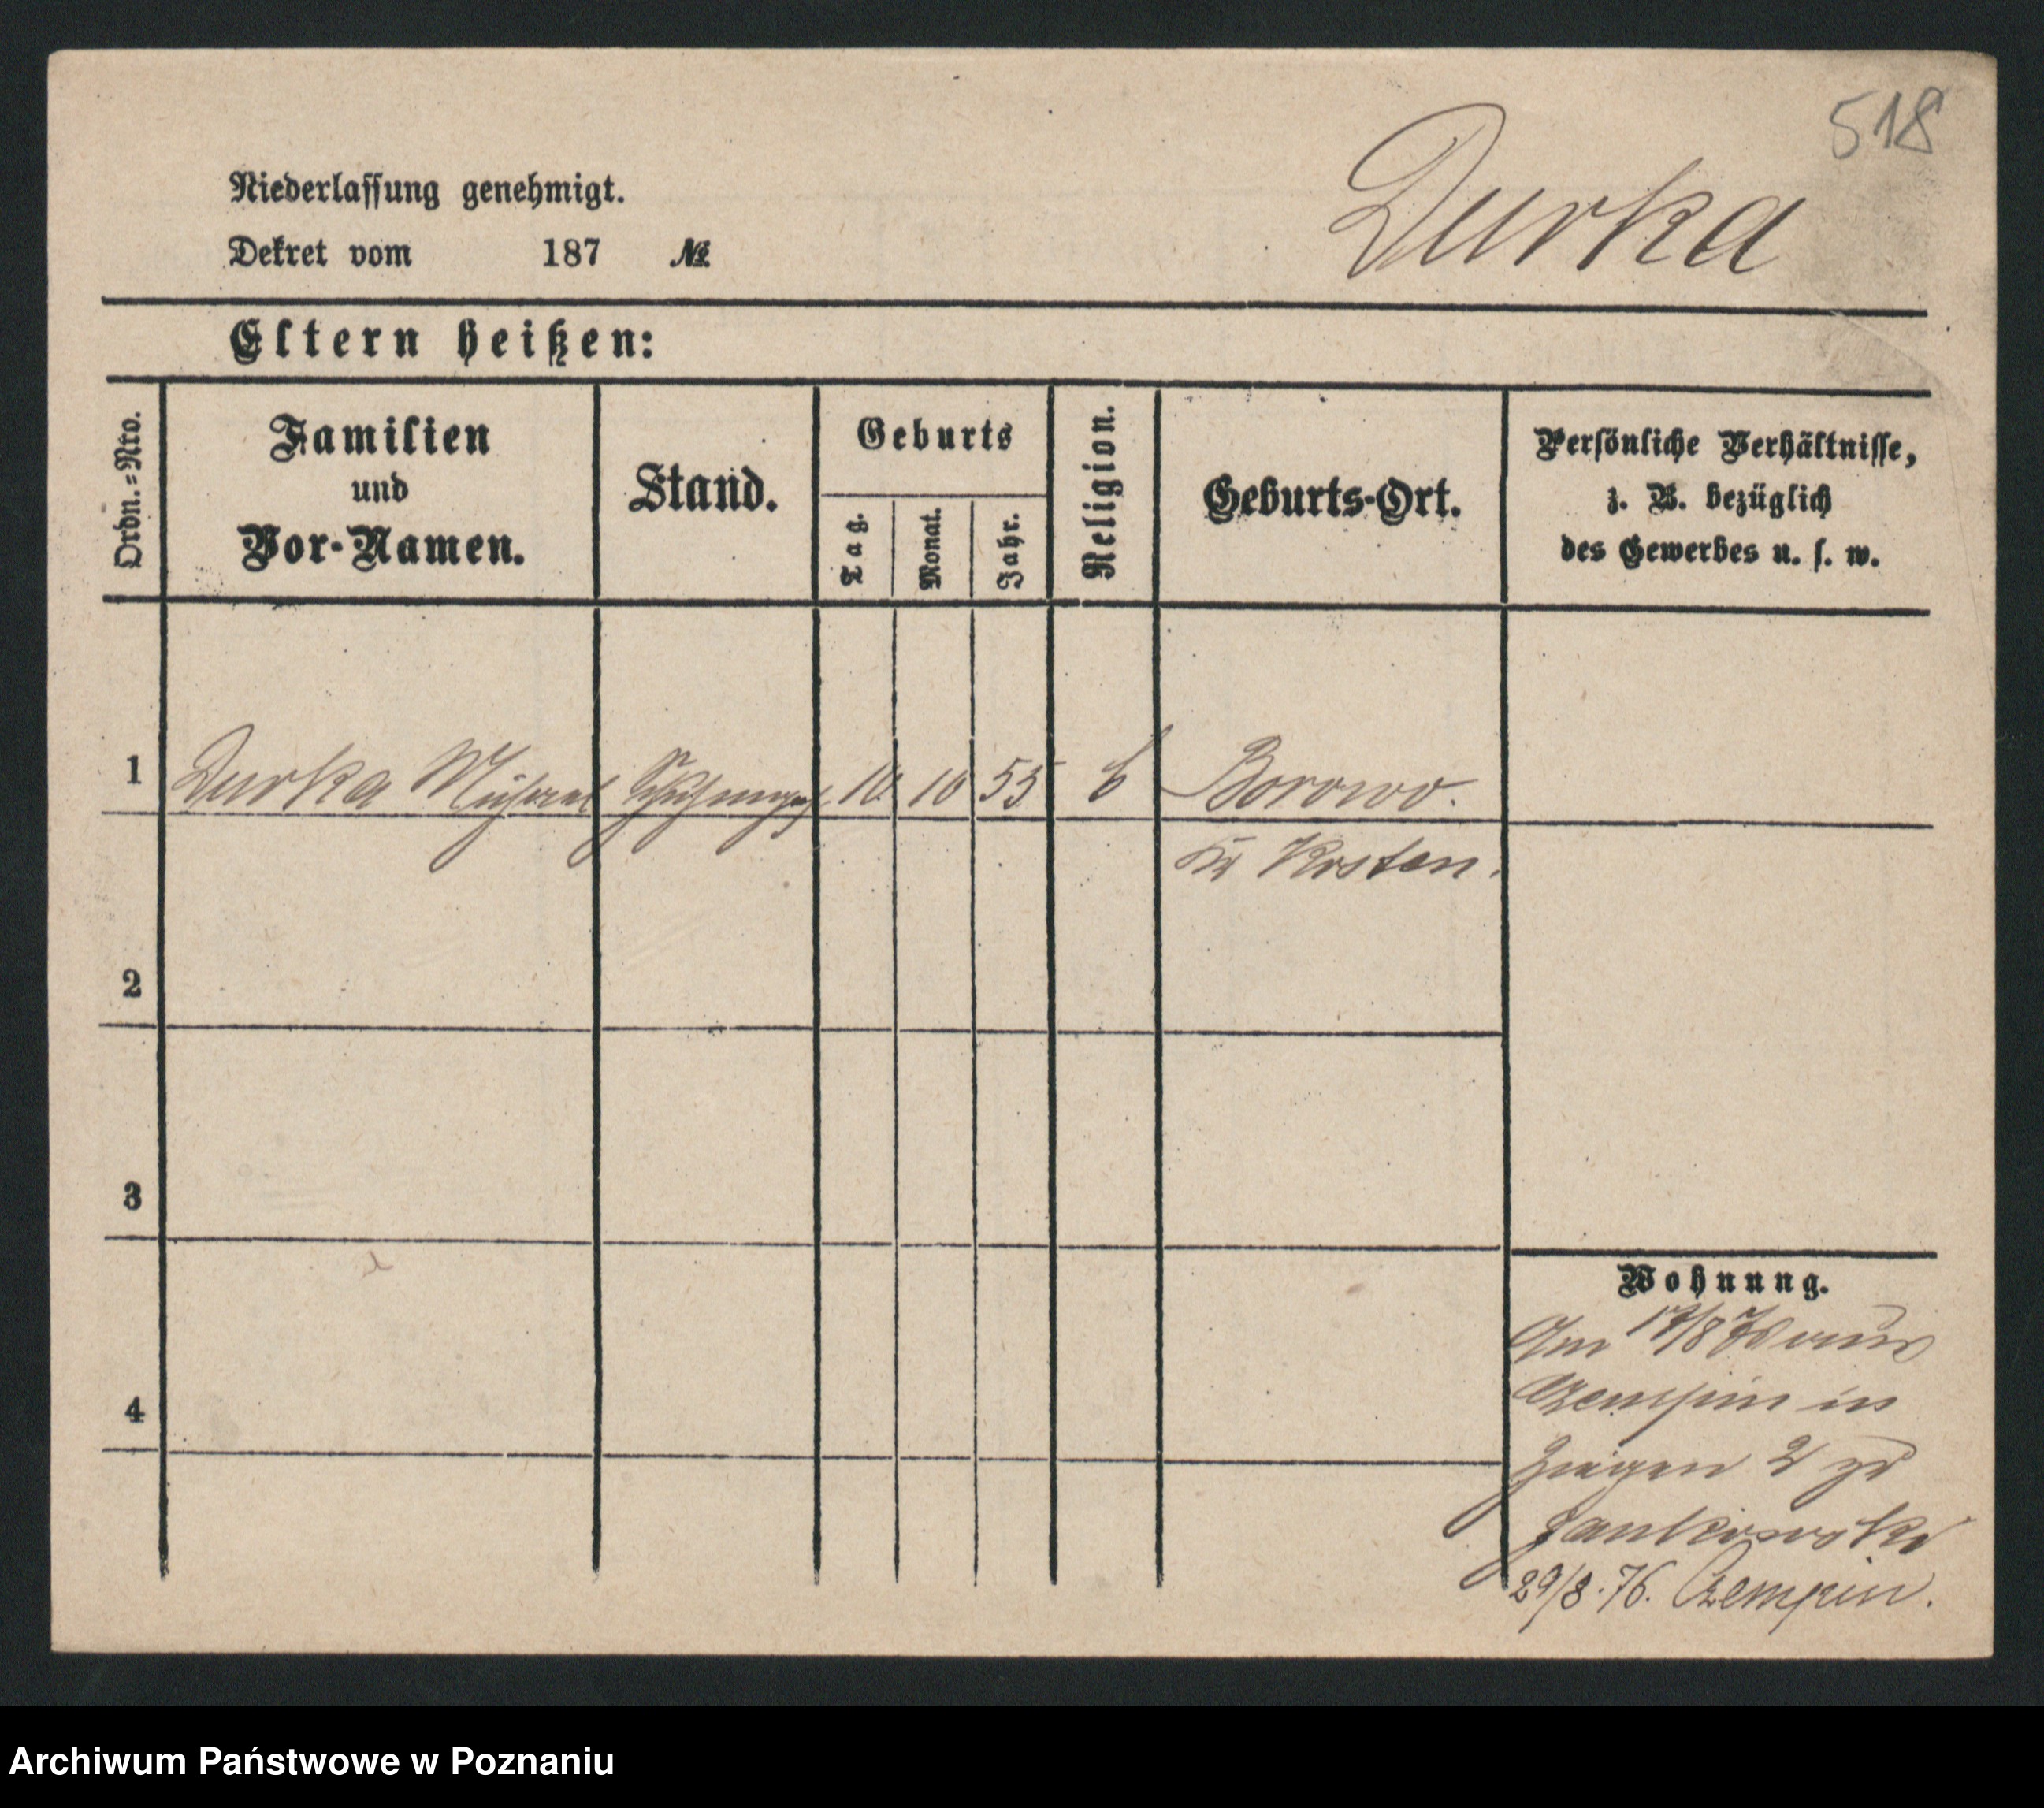 518
Durka
Niederlassung genehmigt.
Dekret vom 187 №
Eltern heißen:
Ordn.=Nro.
Familien
und
Vor-Namen.
Stand.
Geburts
Tag.
Monat.
Jahr.
Religion.
Geburts-Ort.
Persönliche Verhältnisse,
z. B. bezüglich
des Gewerbes u. s. w.
1 Durka Michael 10 10 55 Borowo.
Kr Kosten.
2
3
4
Wohnung.
Am 17/8 76 aus
Czempin in
2
Jankowski
29/8. 76. Czempin.
Archiwum Państwowe w Poznaniu